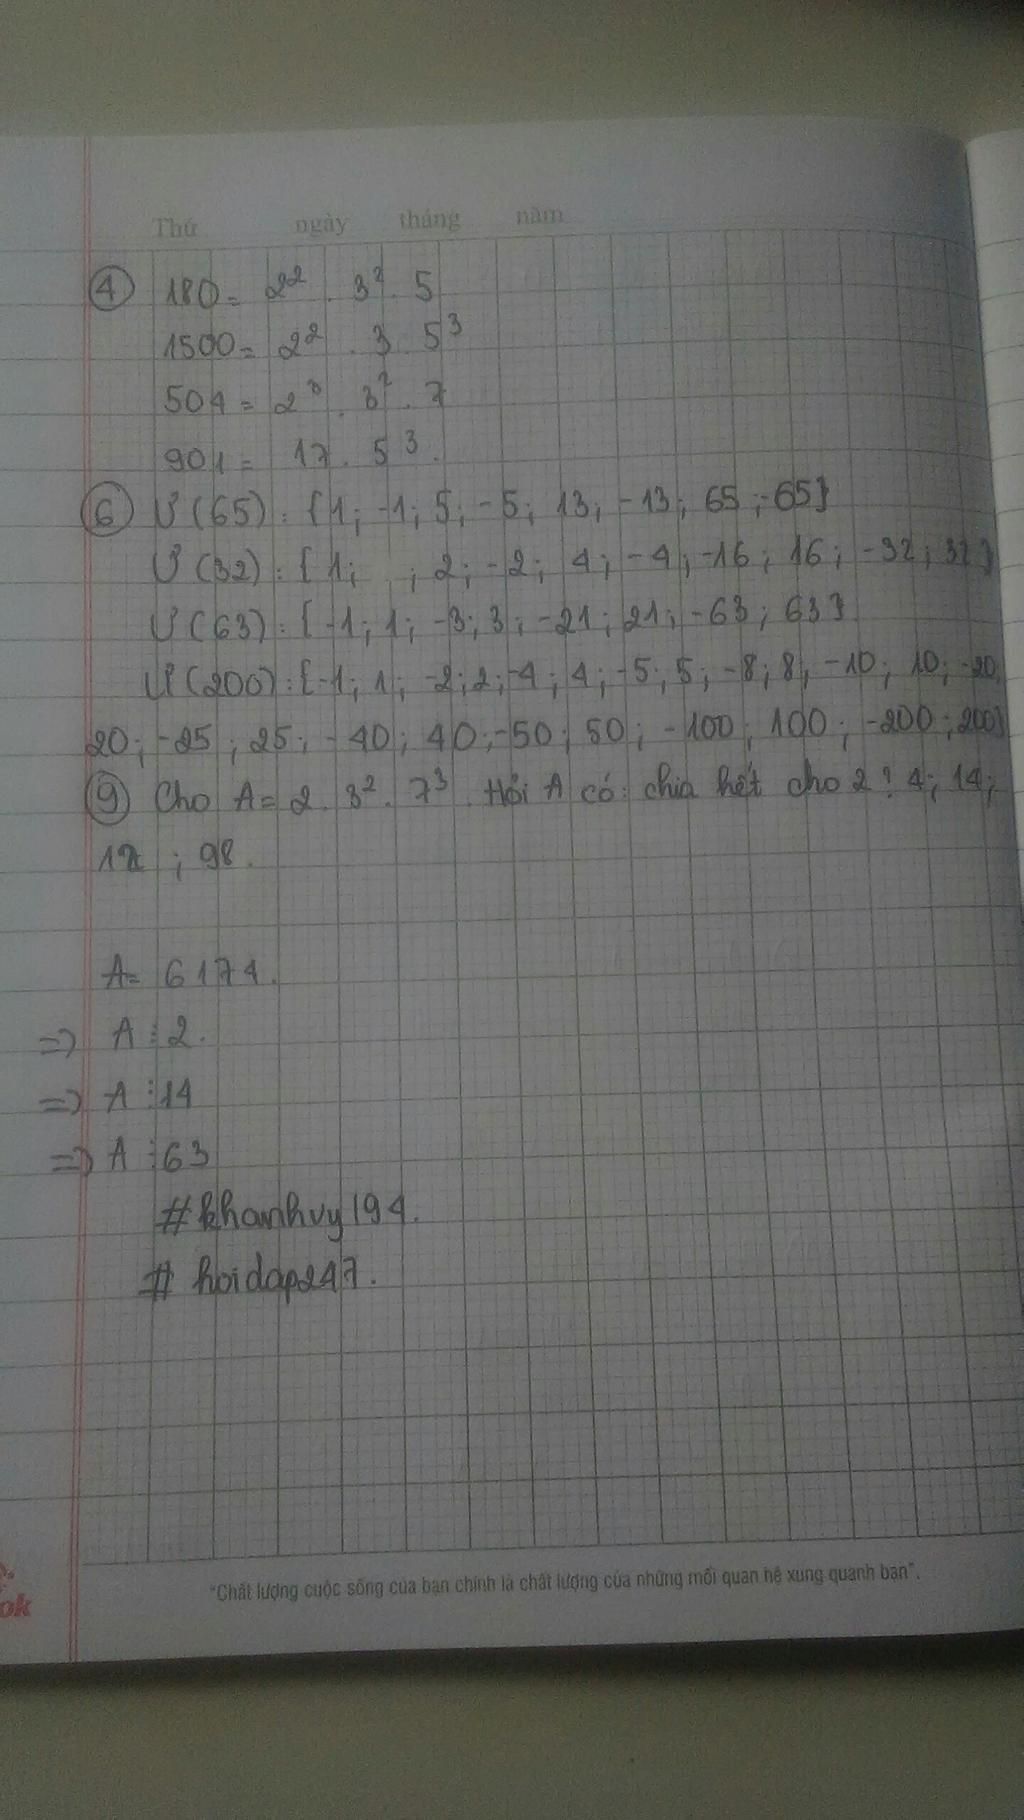 Thứ ngày tháng năm
④ 180 = 2² . 3² . 5
1500 = 2² . 3 . 5³
504 = 2³ . 3² . 7
901 = 17 . 5³.
⑥ Ư(65) : {1; -1; 5; -5; 13; -13; 65; -65}
Ư(32) : {1; ; 2; -2; 4; -4; -16; 16; -32; 32}
Ư(63) : {-1; 1; -3; 3; -21; 21; -63; 63}
Ư(200) : {-1; 1; -2; 2; -4; 4; -5; 5; -8; 8; -10; 10; -20;
20; -25; 25; -40; 40; -50; 50; -100; 100; -200; 200}
⑨ Cho A = 2 . 3² . 7³. Hỏi A có chia hết cho 2? 4; 14;
; 98.
A = 6174.
=> A ⋮ 2.
=> A ⋮ 14
=> A ⋮ 63
#khanhvy194.
# hoidap247.
"Chất lượng cuộc sống của bạn chính là chất lượng của những mối quan hệ xung quanh bạn".
ok